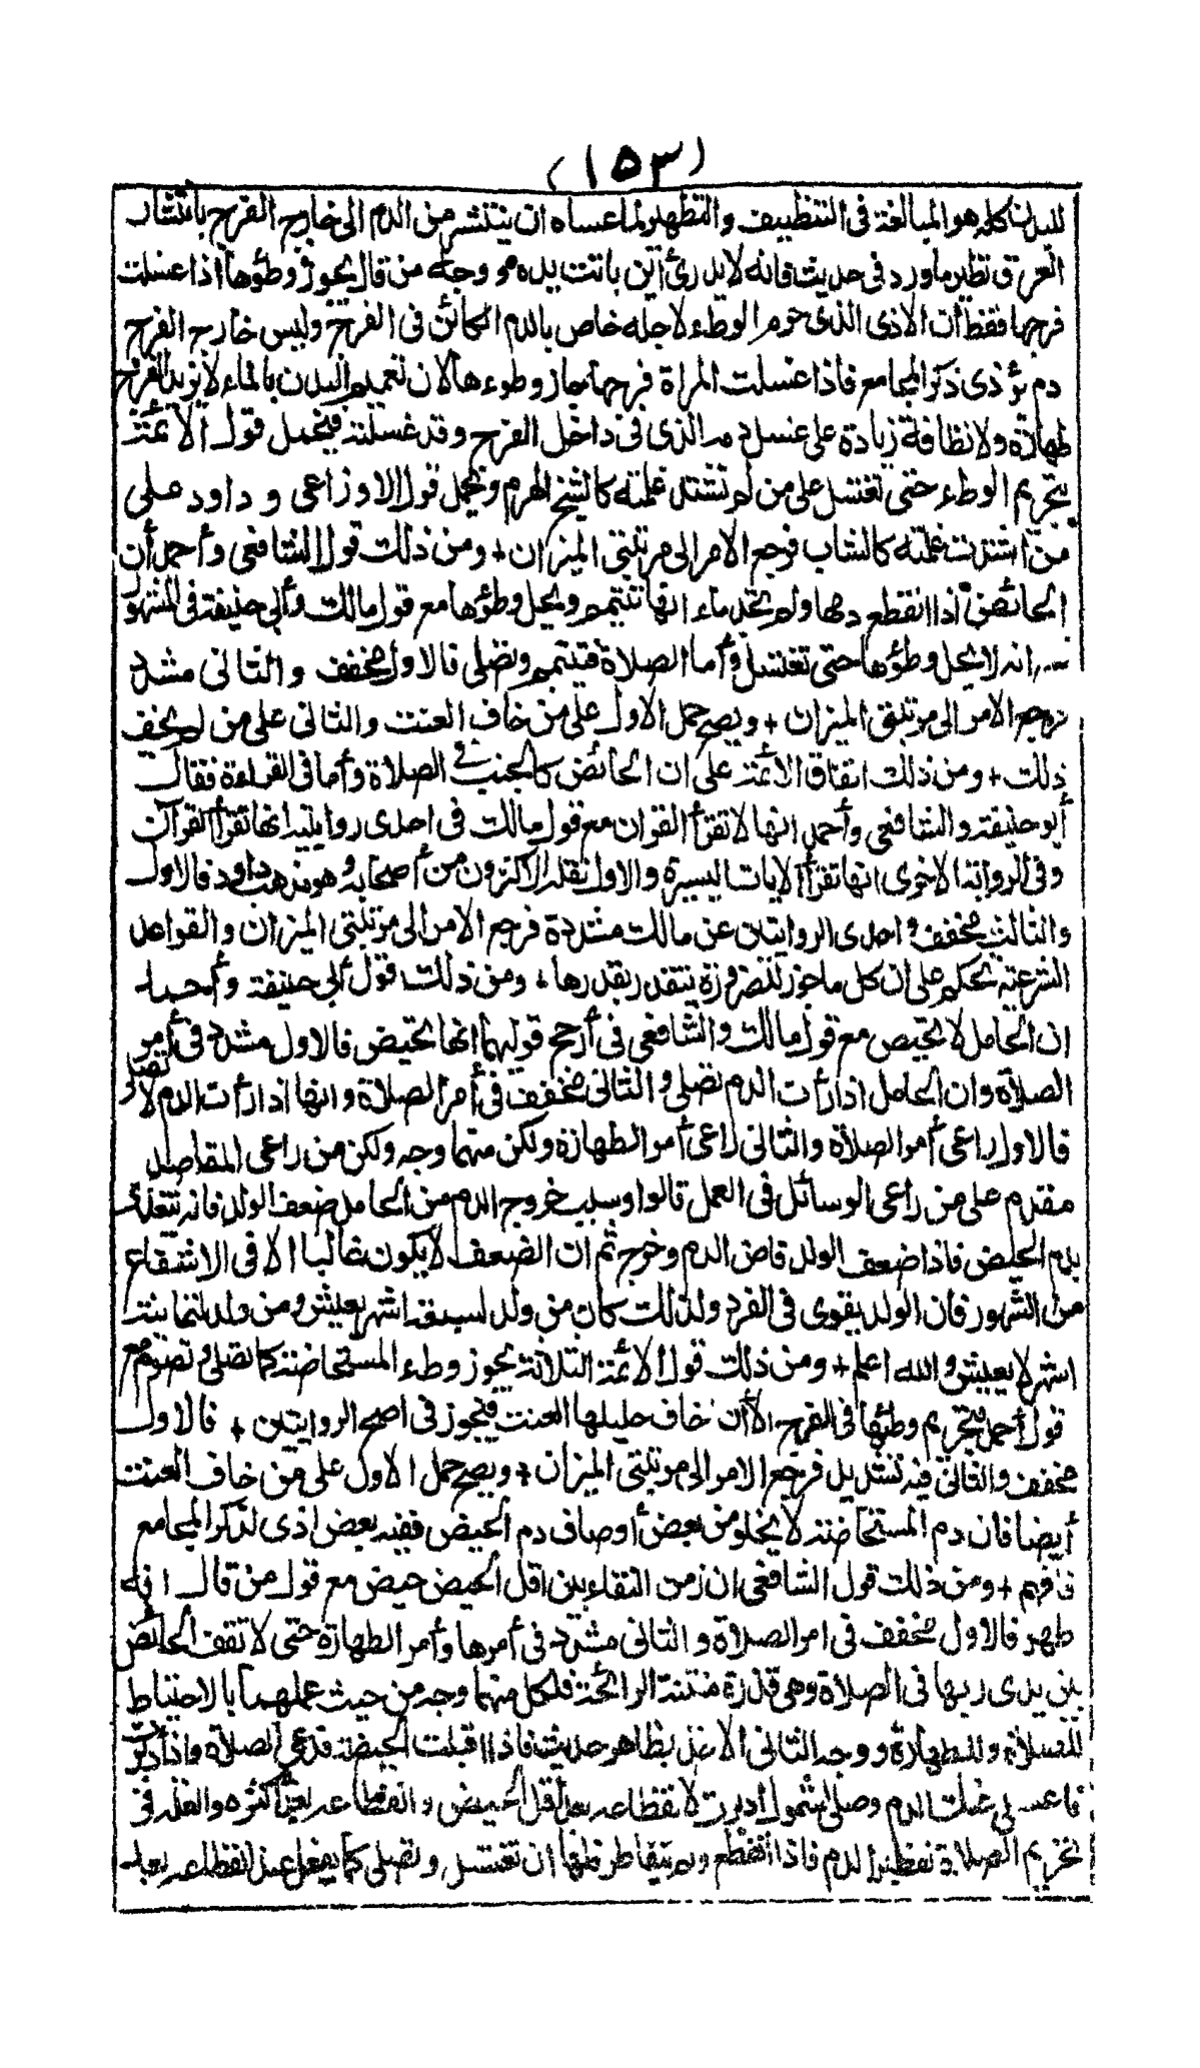 (١٥٣)
للبدن كله هو المبالغة فى التنظيف والتطهير لما عساه ان ينتشر من الدم الى خارج الفرج بانتشار
العرق نظير ما ورد فى حديث فانه لا يدرى أين باتت يده ووجه من قال يجوز وطؤها اذا غسلت
فرجها فقط أن الاذى الذى حرم الوطء لاجله خاص بالدم الكائن فى الفرج وليس خارج الفرج
دم يؤذى ذكر المجامع فاذا غسلت المراة فرجها جاز وطوءها لان تعميم البدن بالماء لا يزيد الفرج
طهارة ولا نظافة زيادة على غسل دمه الذى فى داخل الفرج وقد غسلته فيحمل قول الائمة
بتحريم الوطء حتى تغتسل على من لم تشتد غلمته كالشيخ الهرم ويحمل قول الاوزاعى وداود على
من اشتدت غلمته كالشاب فرجع الامر الى مرتبتى الميزان + ومن ذلك قول الشافعى وأحمد أن
الحائض اذا انقطع دمها ولم تجد ماء انها تتيمم ويحل وطؤها مع قول مالك وأبى حنيفة فى المشهور
انه لا يحل وطؤها حتى تغتسل وأما الصلاة فتتيمم وتصلى فالاول مخفف والثانى مشدد
فرجع الامر الى مرتبتى الميزان + ويصح حمل الاول على من خاف العنت والثانى على من لم يخف
ذلك + ومن ذلك اتفاق الائمة على ان الحائض كالجنب فى الصلاة وأما فى القراءة فقال
أبو حنيفة والشافعى وأحمد انها لا تقرأ القران مع قول مالك فى احدى روايتيه انها تقرأ القرآن
وفى الرواية الاخرى انها تقرأ الايات اليسيرة والاول نقله الاكثرون من أصحابه وهو مذهب داود فالاول
والثالث مخفف واحدى الروايتين عن مالك مشددة فرجع الامر الى مرتبتى الميزان والقواعد
الشرعية تحكم على ان كل ما جوز للضرورة يتقدر بقدرها + ومن ذلك قول أبى حنيفة وأحمد
ان الحامل لا تحيض مع قول مالك والشافعى فى أرجح قوليهما انها تحيض فالاول مشدد فى أمر
الصلاة وان الحامل اذا رأت الدم تصلى والثانى مخفف فى أمر الصلاة وانها اذا رأت الدم لا تصلى
فالاول راعى أمر الصلاة والثانى راعى أمر الطهارة ولكن منهما وجه ولكن من راعى المقاصد
مقدم على من راعى الوسائل فى العمل قالوا وسبب خروج الدم من الحامل ضعف الولد فانه يتغذى
بدم الحيض فاذا ضعف الولد فاض الدم وخرج ثم ان الضعف لا يكون غالبا الا فى الاشفاع
من الشهور فان الولد يقوى فى الفرد ولذلك كان من ولد لسبعة اشهر يعيش ومن ولد لثمانية
اشهر لا يعيش والله اعلم + ومن ذلك قول الائمة الثلاثة يجوز وطء المستحاضة كما تصلى وتصوم مع
قول أحمد بتحريم وطئها فى الفرج الا أن خاف حليلها العنت فيجوز فى اصح الروايتين + فالاول
مخفف والثانى فيه تشديد فرجع الامر الى مرتبتى الميزان + ويصح حمل الاول على من خاف العنت
أيضا فان دم المستحاضة لا يخلو من بعض أوصاف دم الحيض ففيه بعض اذى لذكر المجامع
فافهم + ومن ذلك قول الشافعى ان زمن النقاء بين اقل الحيض حيض مع قول من قال انه
طهر فالاول مخفف فى امر الصلاة والثانى مشدد فى أمرها وأمر الطهارة حتى لا تقف الحائض
بين يدى ربها فى الصلاة وهى قذرة منتنة الرائحة فلكل منهما وجه من حيث عملهما بالاحتياط
للصلاة وللطهارة ووجه الثانى الاخذ بظاهر حديث فاذا اقبلت الحيضة فدعى الصلاة واذا أدبرت
فاغسلى عنك الدم وصلى لشمول أدبرت لانقطاعه بعد اقل الحيض وانقطاعه بعد أكثره والعلة فى
تحريم الصلاة تقطير الدم فاذا انقطع ولم يتقاطر فلها ان تغتسل وتصلى كما يفعل عند انقطاعه بعد